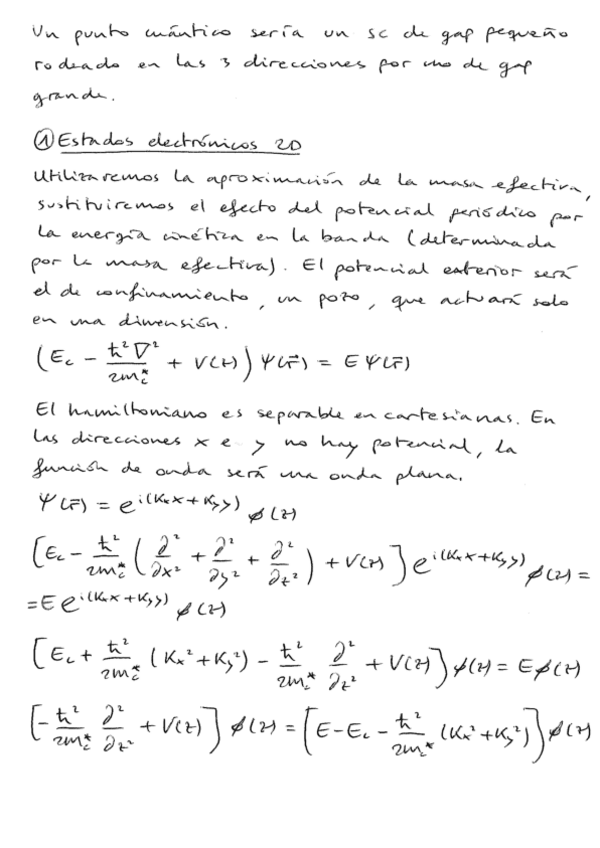 Un punto cuántico sería un sc de gap pequeño
rodeado en las 3 direcciones por uno de gap
grande.
① Estados electrónicos 2D
Utilizaremos la aproximación de la masa efectiva,
sustituiremos el efecto del potencial periódico por
la energía cinética en la banda (determinada
por la masa efectiva). El potencial exterior será
el de confinamiento, un pozo, que actuará solo
en una dimensión.
(E_c - ħ²∇²/2m_c* + V(z)) Ψ(r̄) = E Ψ(r̄)
El hamiltoniano es separable en cartesianas. En
las direcciones x e y no hay potencial, la
función de onda será una onda plana.
Ψ(r̄) = e^{i(Kₓx + K_y y)} ϕ(z)
[E_c - ħ²/2m_c* (∂²/∂x² + ∂²/∂y² + ∂²/∂z²) + V(z)] e^{i(Kₓx + K_y y)} ϕ(z) =
= E e^{i(Kₓx + K_y y)} ϕ(z)
[E_c + ħ²/2m_c* (Kₓ² + K_y²) - ħ²/2m_c* ∂²/∂z² + V(z)] ϕ(z) = E ϕ(z)
[-ħ²/2m_c* ∂²/∂z² + V(z)] ϕ(z) = [E - E_c - ħ²/2m_c* (Kₓ² + K_y²)] ϕ(z)